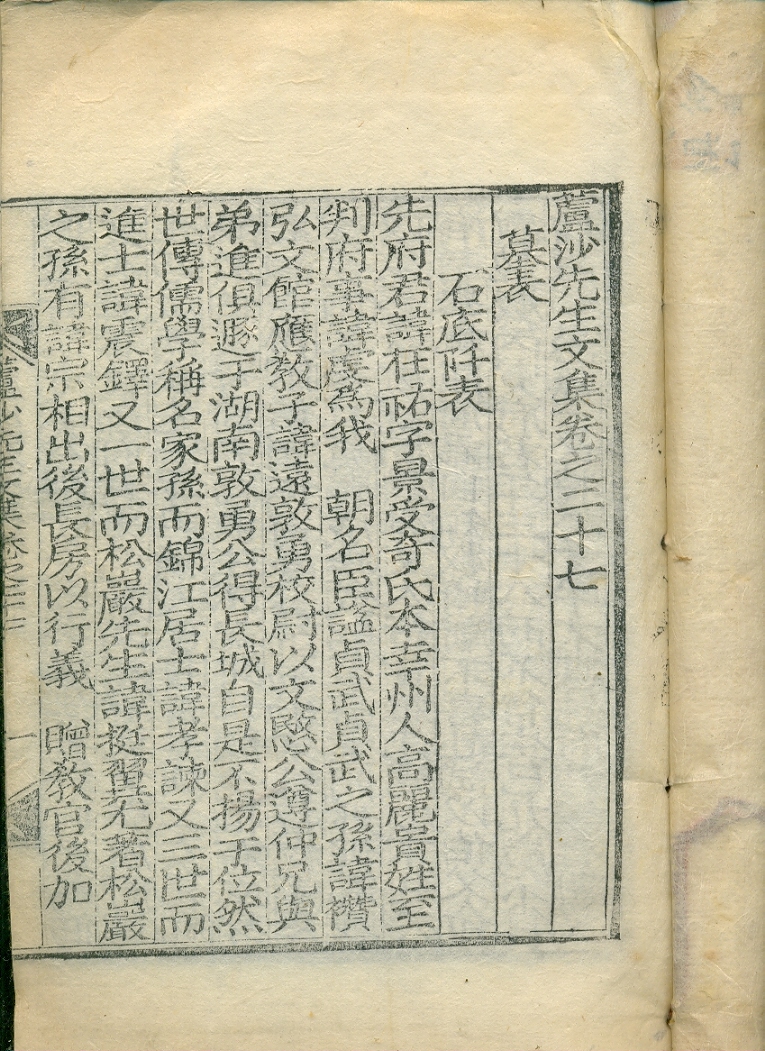 蘆沙先生文集卷之二十七
墓表
石底阡表
先府君諱在祐字景受奇氏本幸州人高麗貴姓至
判府事諱虔為我 朝名臣謚貞武貞武之孫諱禶
弘文館應敎子諱遠敦勇校尉以文愍公遵仲兄與
弟進俱遯于湖南敦勇公得長城自是不揚于位然
世傳儒學稱名家孫而錦江居士諱孝諫又三世而
進士諱震鐸又一世而松巖先生諱挺翼尤著松巖
之孫有諱宗相出後長房以行義 贈敎官後加
蘆沙先生文集卷之二十
一